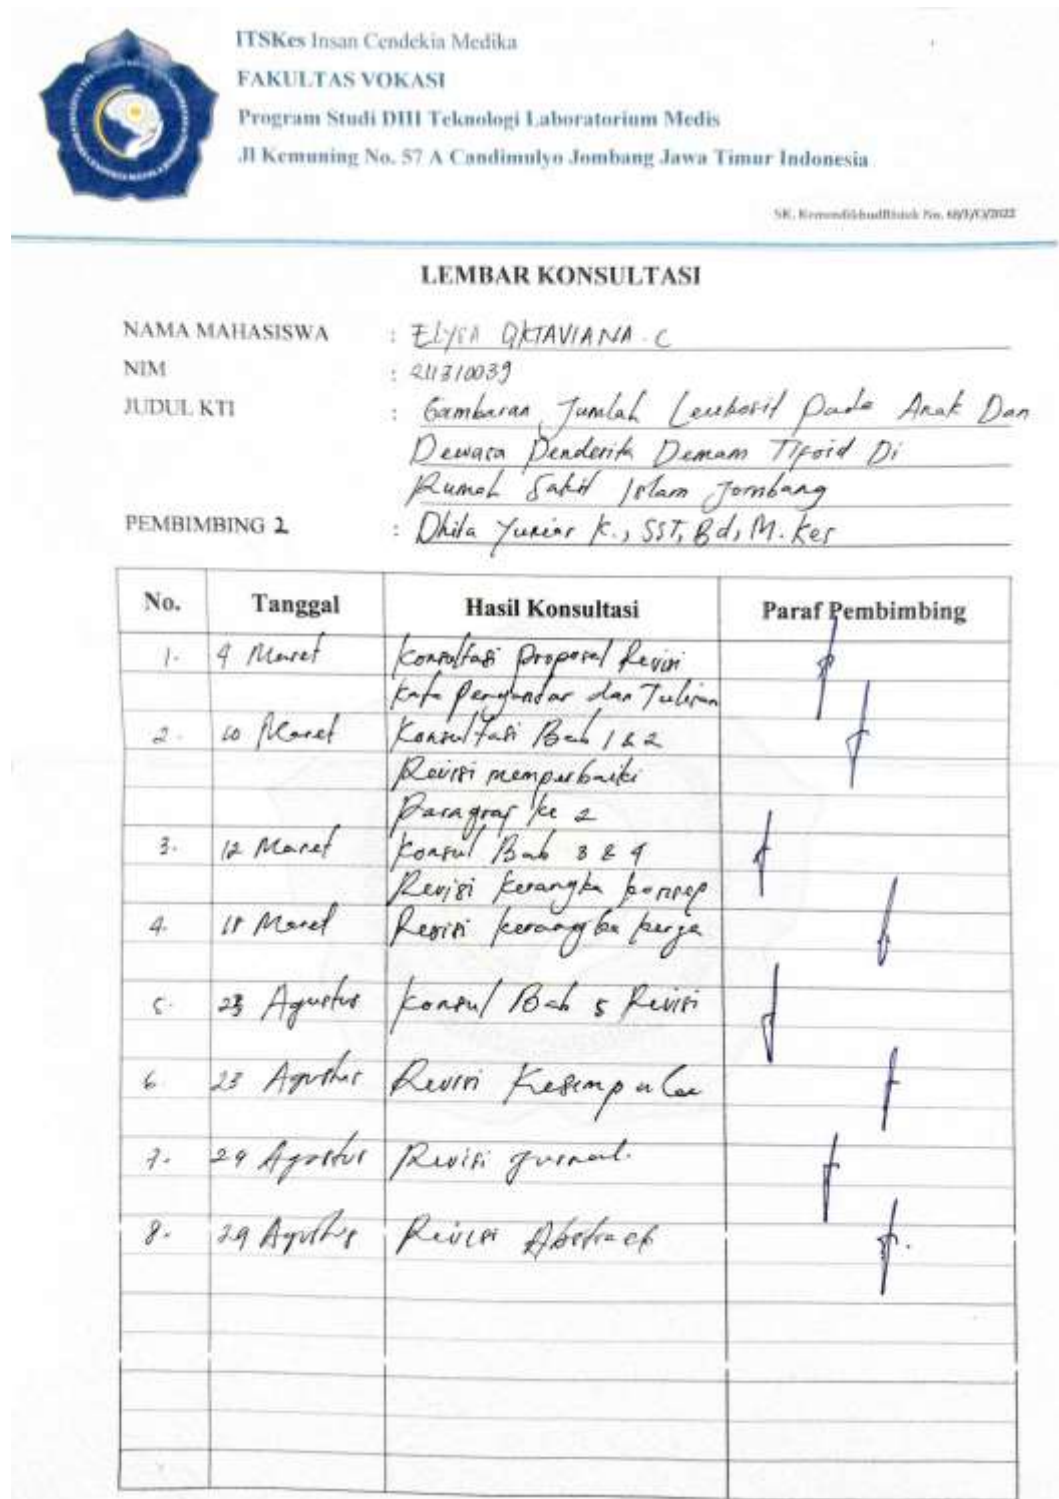 ITSKes Insan Cendekia Medika
FAKULTAS VOKASI
Program Studi DIII Teknologi Laboratorium Medis
Jl Kemuning No. 57 A Candimulyo Jombang Jawa Timur Indonesia
SK. KemendikbudRistek No. 68/E/O/2022
LEMBAR KONSULTASI
NAMA MAHASISWA : ELYSA OKTAVIANA . C
NIM : 211310039
JUDUL KTI : Gambaran Jumlah Leukosit Pada Anak Dan
Dewasa Penderita Demam Tifoid Di
Rumah Sakit Islam Jombang
PEMBIMBING 2 : Dhita Yuniar K., SST, Bd, M. Kes
No. Tanggal Hasil Konsultasi Paraf Pembimbing
1. 4 Maret Konsultasi Proposal Revisi
Kata Pengantar dan Tulisan
2. 10 Maret Konsultasi Bab 1 & 2
Revisi memperbaiki
Paragraf ke 2
3. 12 Maret Konsul Bab 3 & 4
Revisi Kerangka konsep
4. 18 Maret Revisi kerangka kerja
5. 23 Agustus Konsul Bab 5 Revisi
6. 23 Agustus Revisi Kesimpulan
7. 29 Agustus Revisi Jurnal.
8. 29 Agustus Revisi Abstract